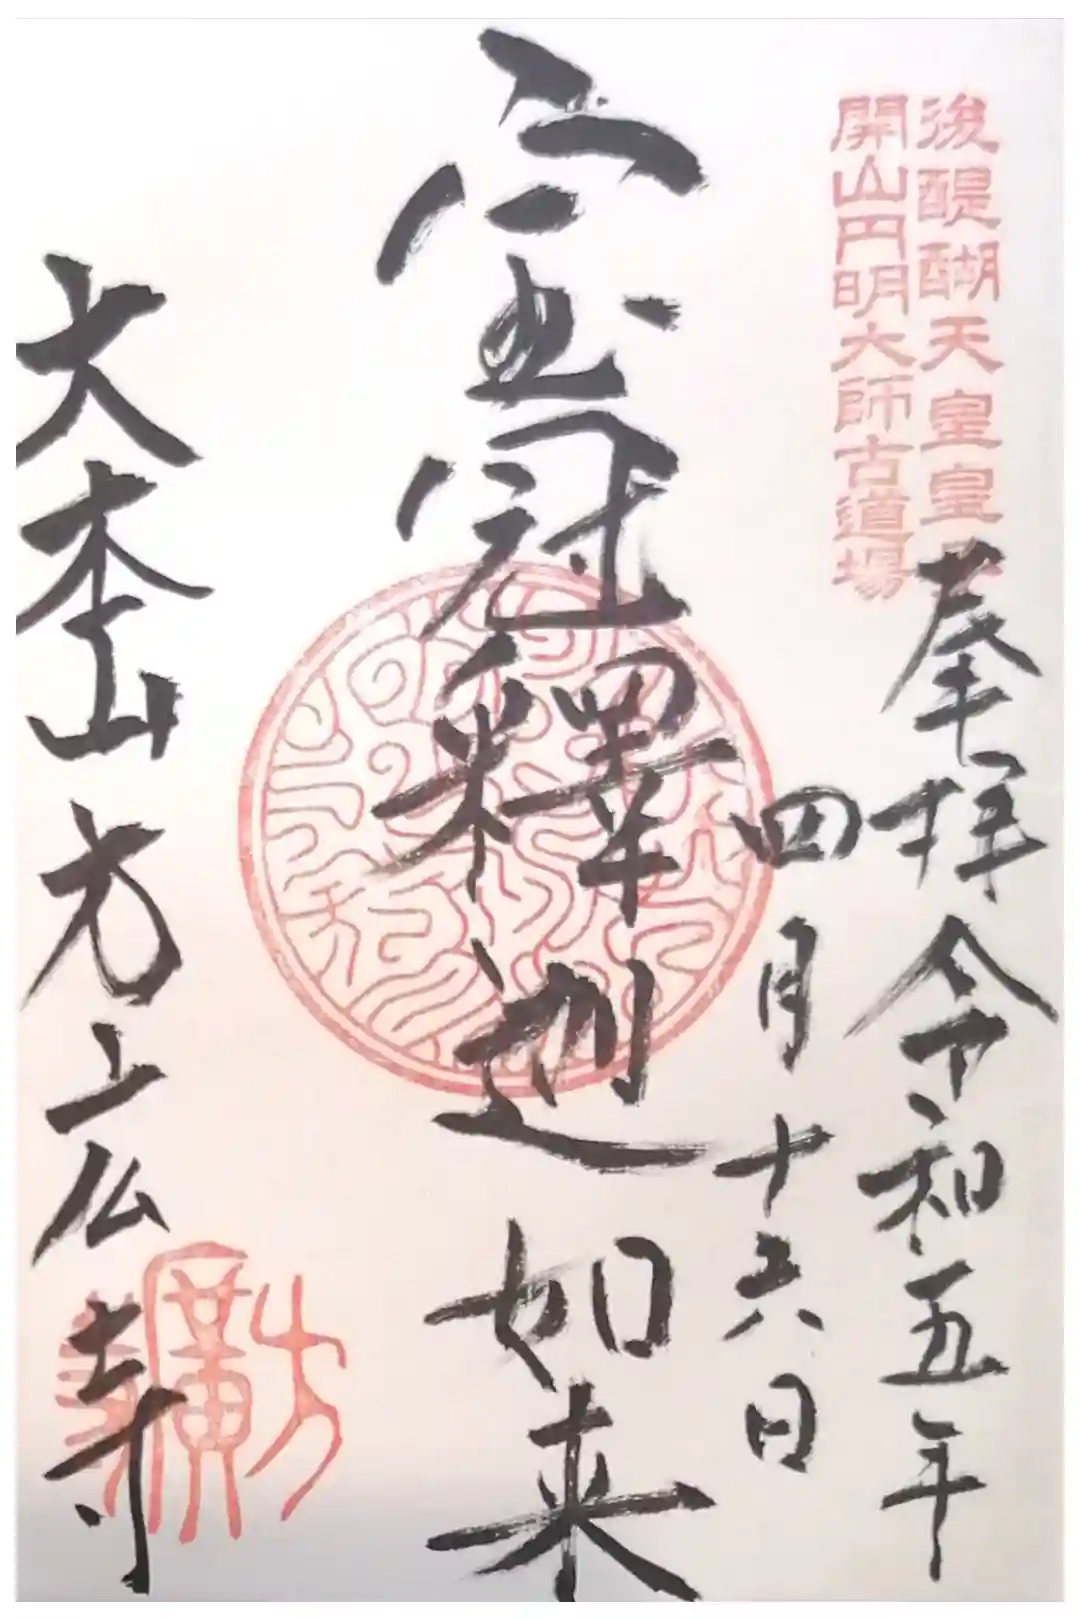 後醍醐天皇皇
開山円明大師古道場
奉拝令和五年
四月十六日
宝冠釋迦如来
大本山方広寺